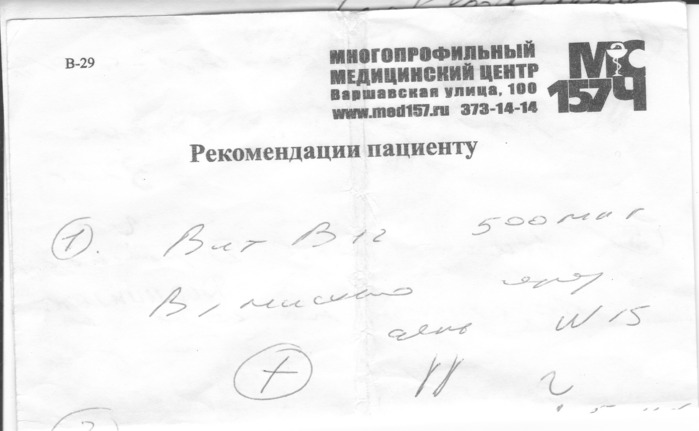 В-29
МНОГОПРОФИЛЬНЫЙ
МЕДИЦИНСКИЙ ЦЕНТР
Варшавская улица, 100
www.med157.ru 373-14-14
МСЧ 157
Рекомендации пациенту
1. Вит В12 500 мкг
В/мышечно через
день N 15
+
2